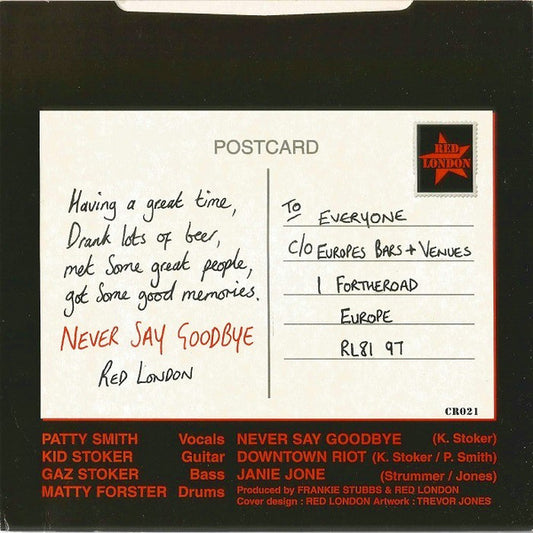 POSTCARD
RED
LONDON
Having a great time,
Drank lots of beer,
met Some great people,
got Some good memories.
NEVER SAY GOODBYE
RED LONDON
To
EVERYONE
C/O EUROPES BARS + VENUES
1 FORTHEROAD
EUROPE
RL81 97
CR021
PATTY SMITH Vocals NEVER SAY GOODBYE (K. Stoker)
KID STOKER Guitar DOWNTOWN RIOT (K. Stoker / P. Smith)
GAZ STOKER Bass JANIE JONE (Strummer / Jones)
MATTY FORSTER Drums Produced by FRANKIE STUBBS & RED LONDON
Cover design : RED LONDON Artwork : TREVOR JONES